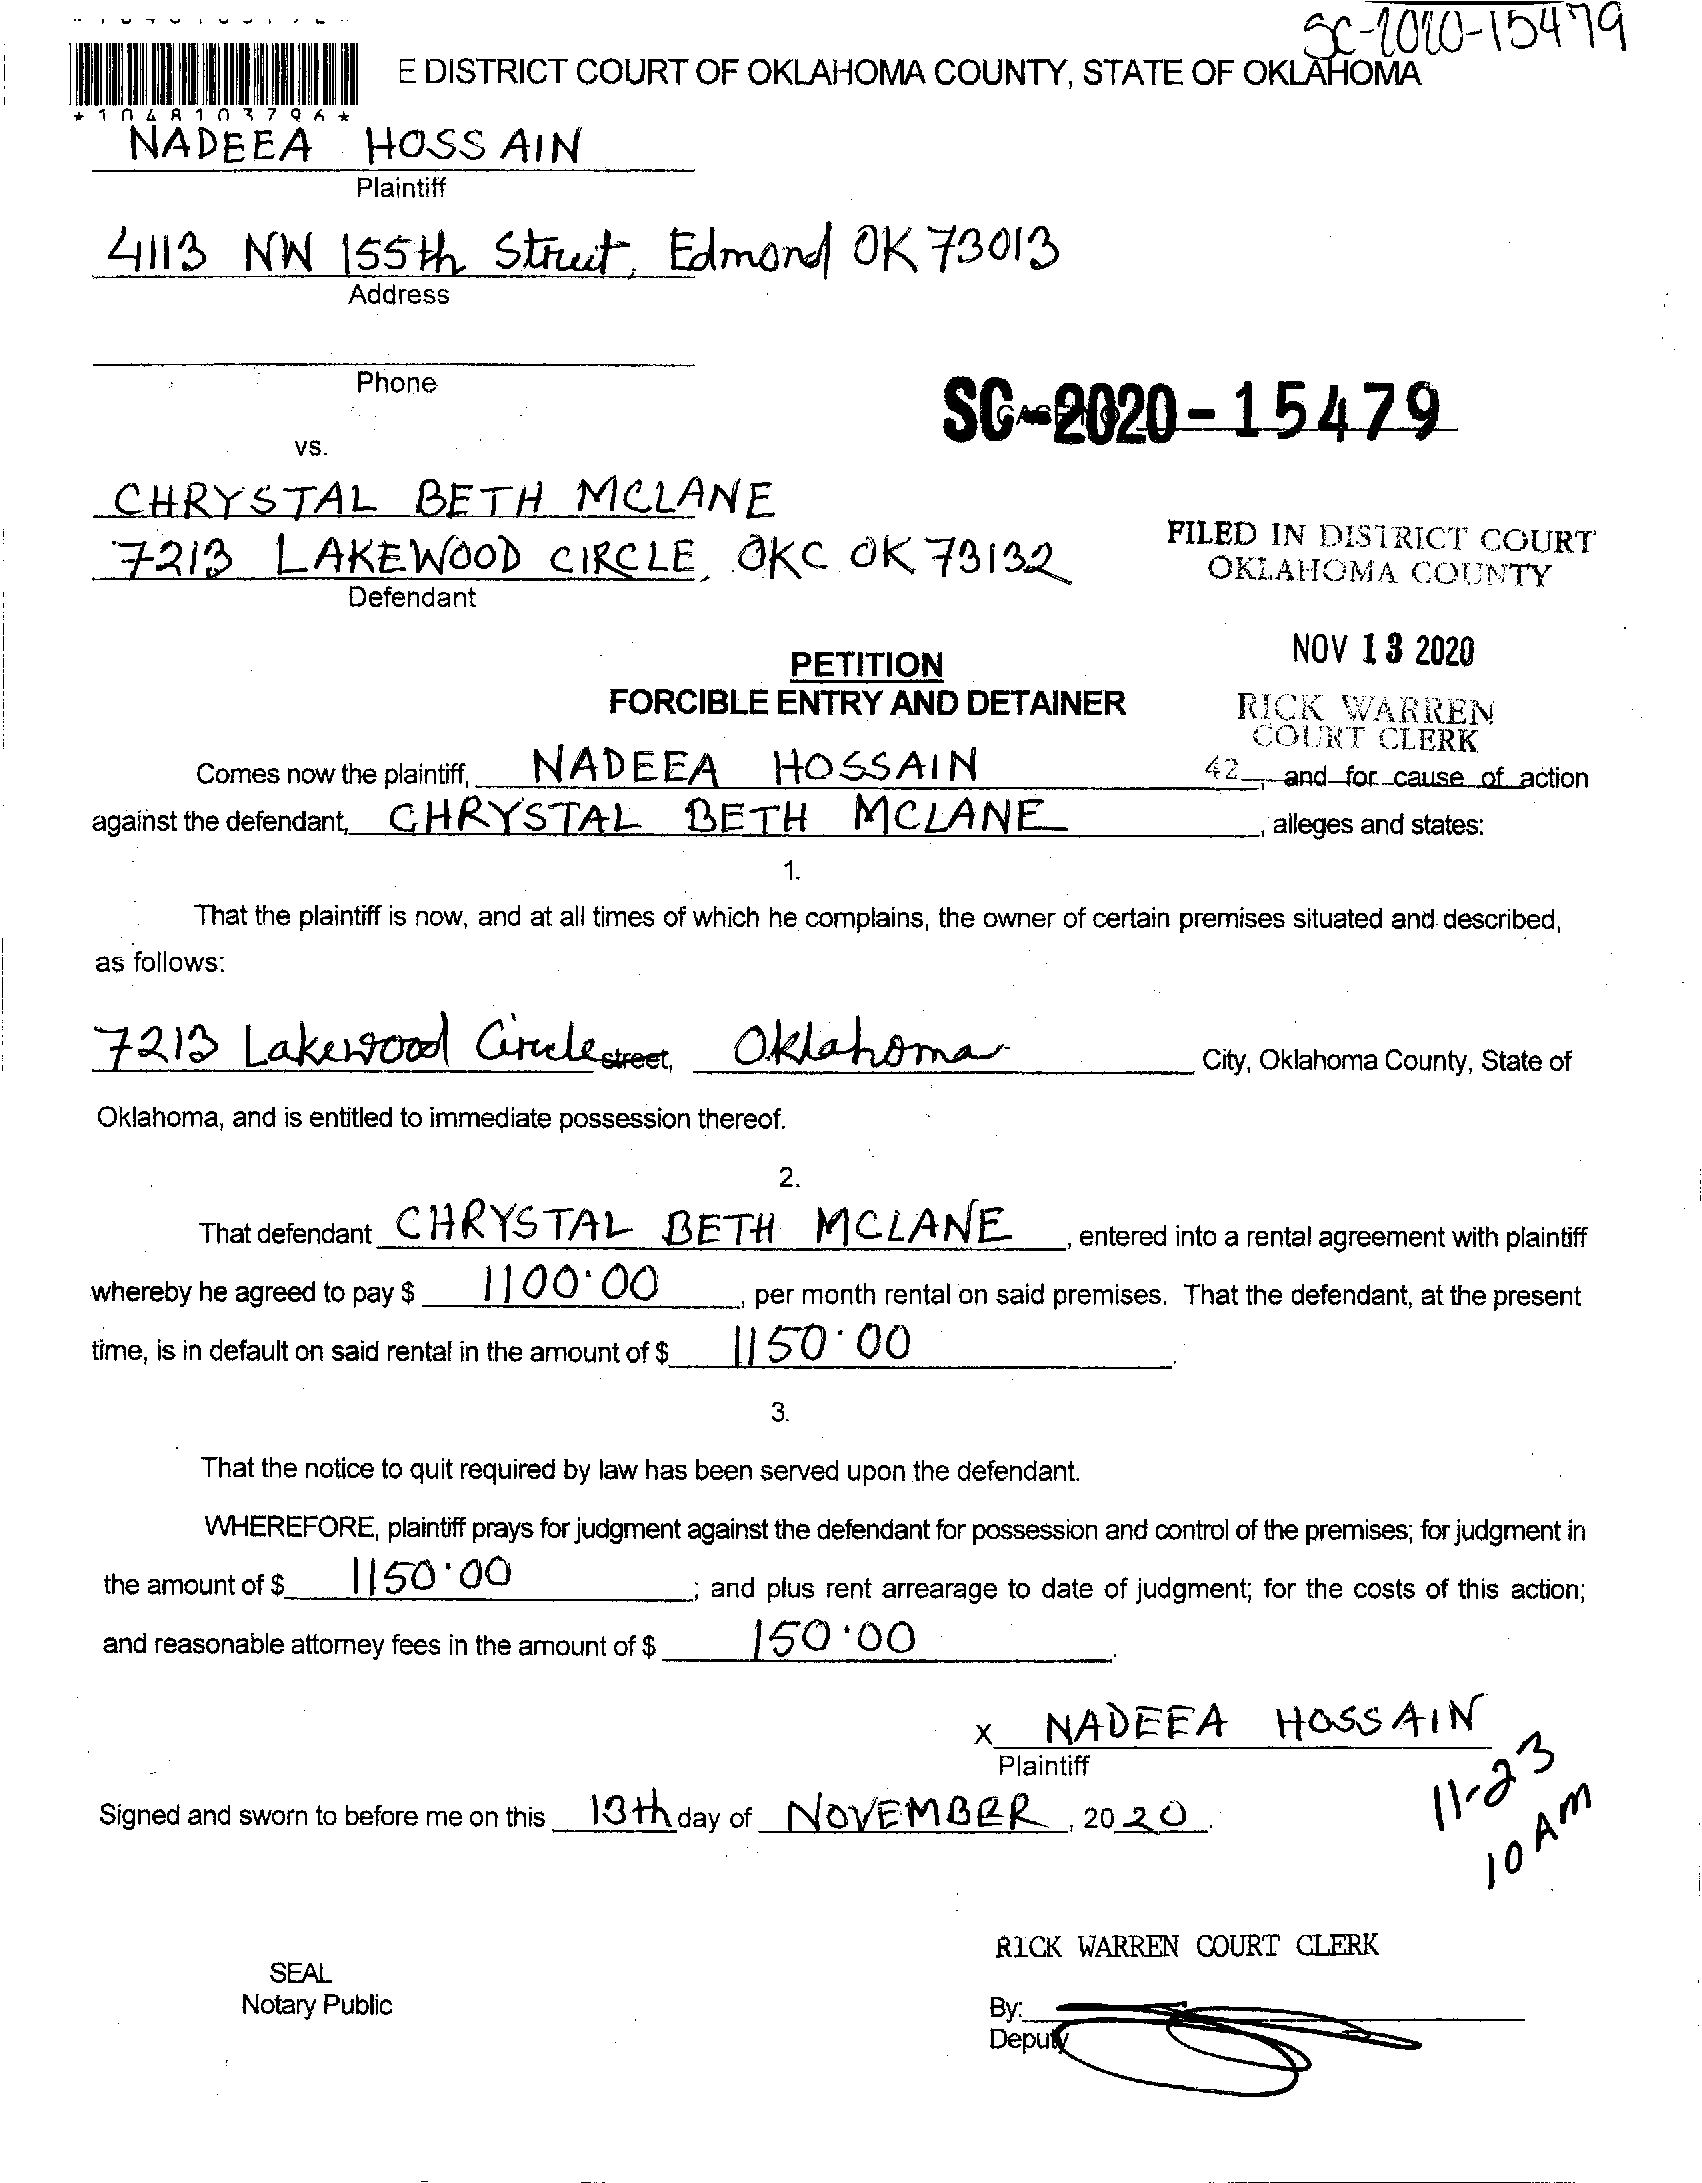 SC-2020-15479
E DISTRICT COURT OF OKLAHOMA COUNTY, STATE OF OKLAHOMA
*1048103796*
NADEEA HOSSAIN
Plaintiff
4113 NW 155th Street, Edmond OK 73013
Address
Phone
SC-2020-15479
vs.
CHRYSTAL BETH MCLANE
7213 LAKEWOOD CIRCLE, OKC OK 73132
Defendant
FILED IN DISTRICT COURT
OKLAHOMA COUNTY
NOV 13 2020
RICK WARREN
COURT CLERK
42
PETITION
FORCIBLE ENTRY AND DETAINER
Comes now the plaintiff, NADEEA HOSSAIN, and for cause of action
against the defendant, CHRYSTAL BETH MCLANE, alleges and states:
1.
That the plaintiff is now, and at all times of which he complains, the owner of certain premises situated and described,
as follows:
7213 Lakewood Circle street, Oklahoma City, Oklahoma County, State of
Oklahoma, and is entitled to immediate possession thereof.
2.
That defendant CHRYSTAL BETH MCLANE, entered into a rental agreement with plaintiff
whereby he agreed to pay $ 1100.00, per month rental on said premises. That the defendant, at the present
time, is in default on said rental in the amount of $ 1150.00.
3.
That the notice to quit required by law has been served upon the defendant.
WHEREFORE, plaintiff prays for judgment against the defendant for possession and control of the premises; for judgment in
the amount of $ 1150.00; and plus rent arrearage to date of judgment; for the costs of this action;
and reasonable attorney fees in the amount of $ 150.00.
X NADEEA HOSSAIN
Plaintiff
11-23
10 AM
Signed and sworn to before me on this 13th day of NOVEMBER, 2020.
RICK WARREN COURT CLERK
SEAL
Notary Public
By:
Deputy